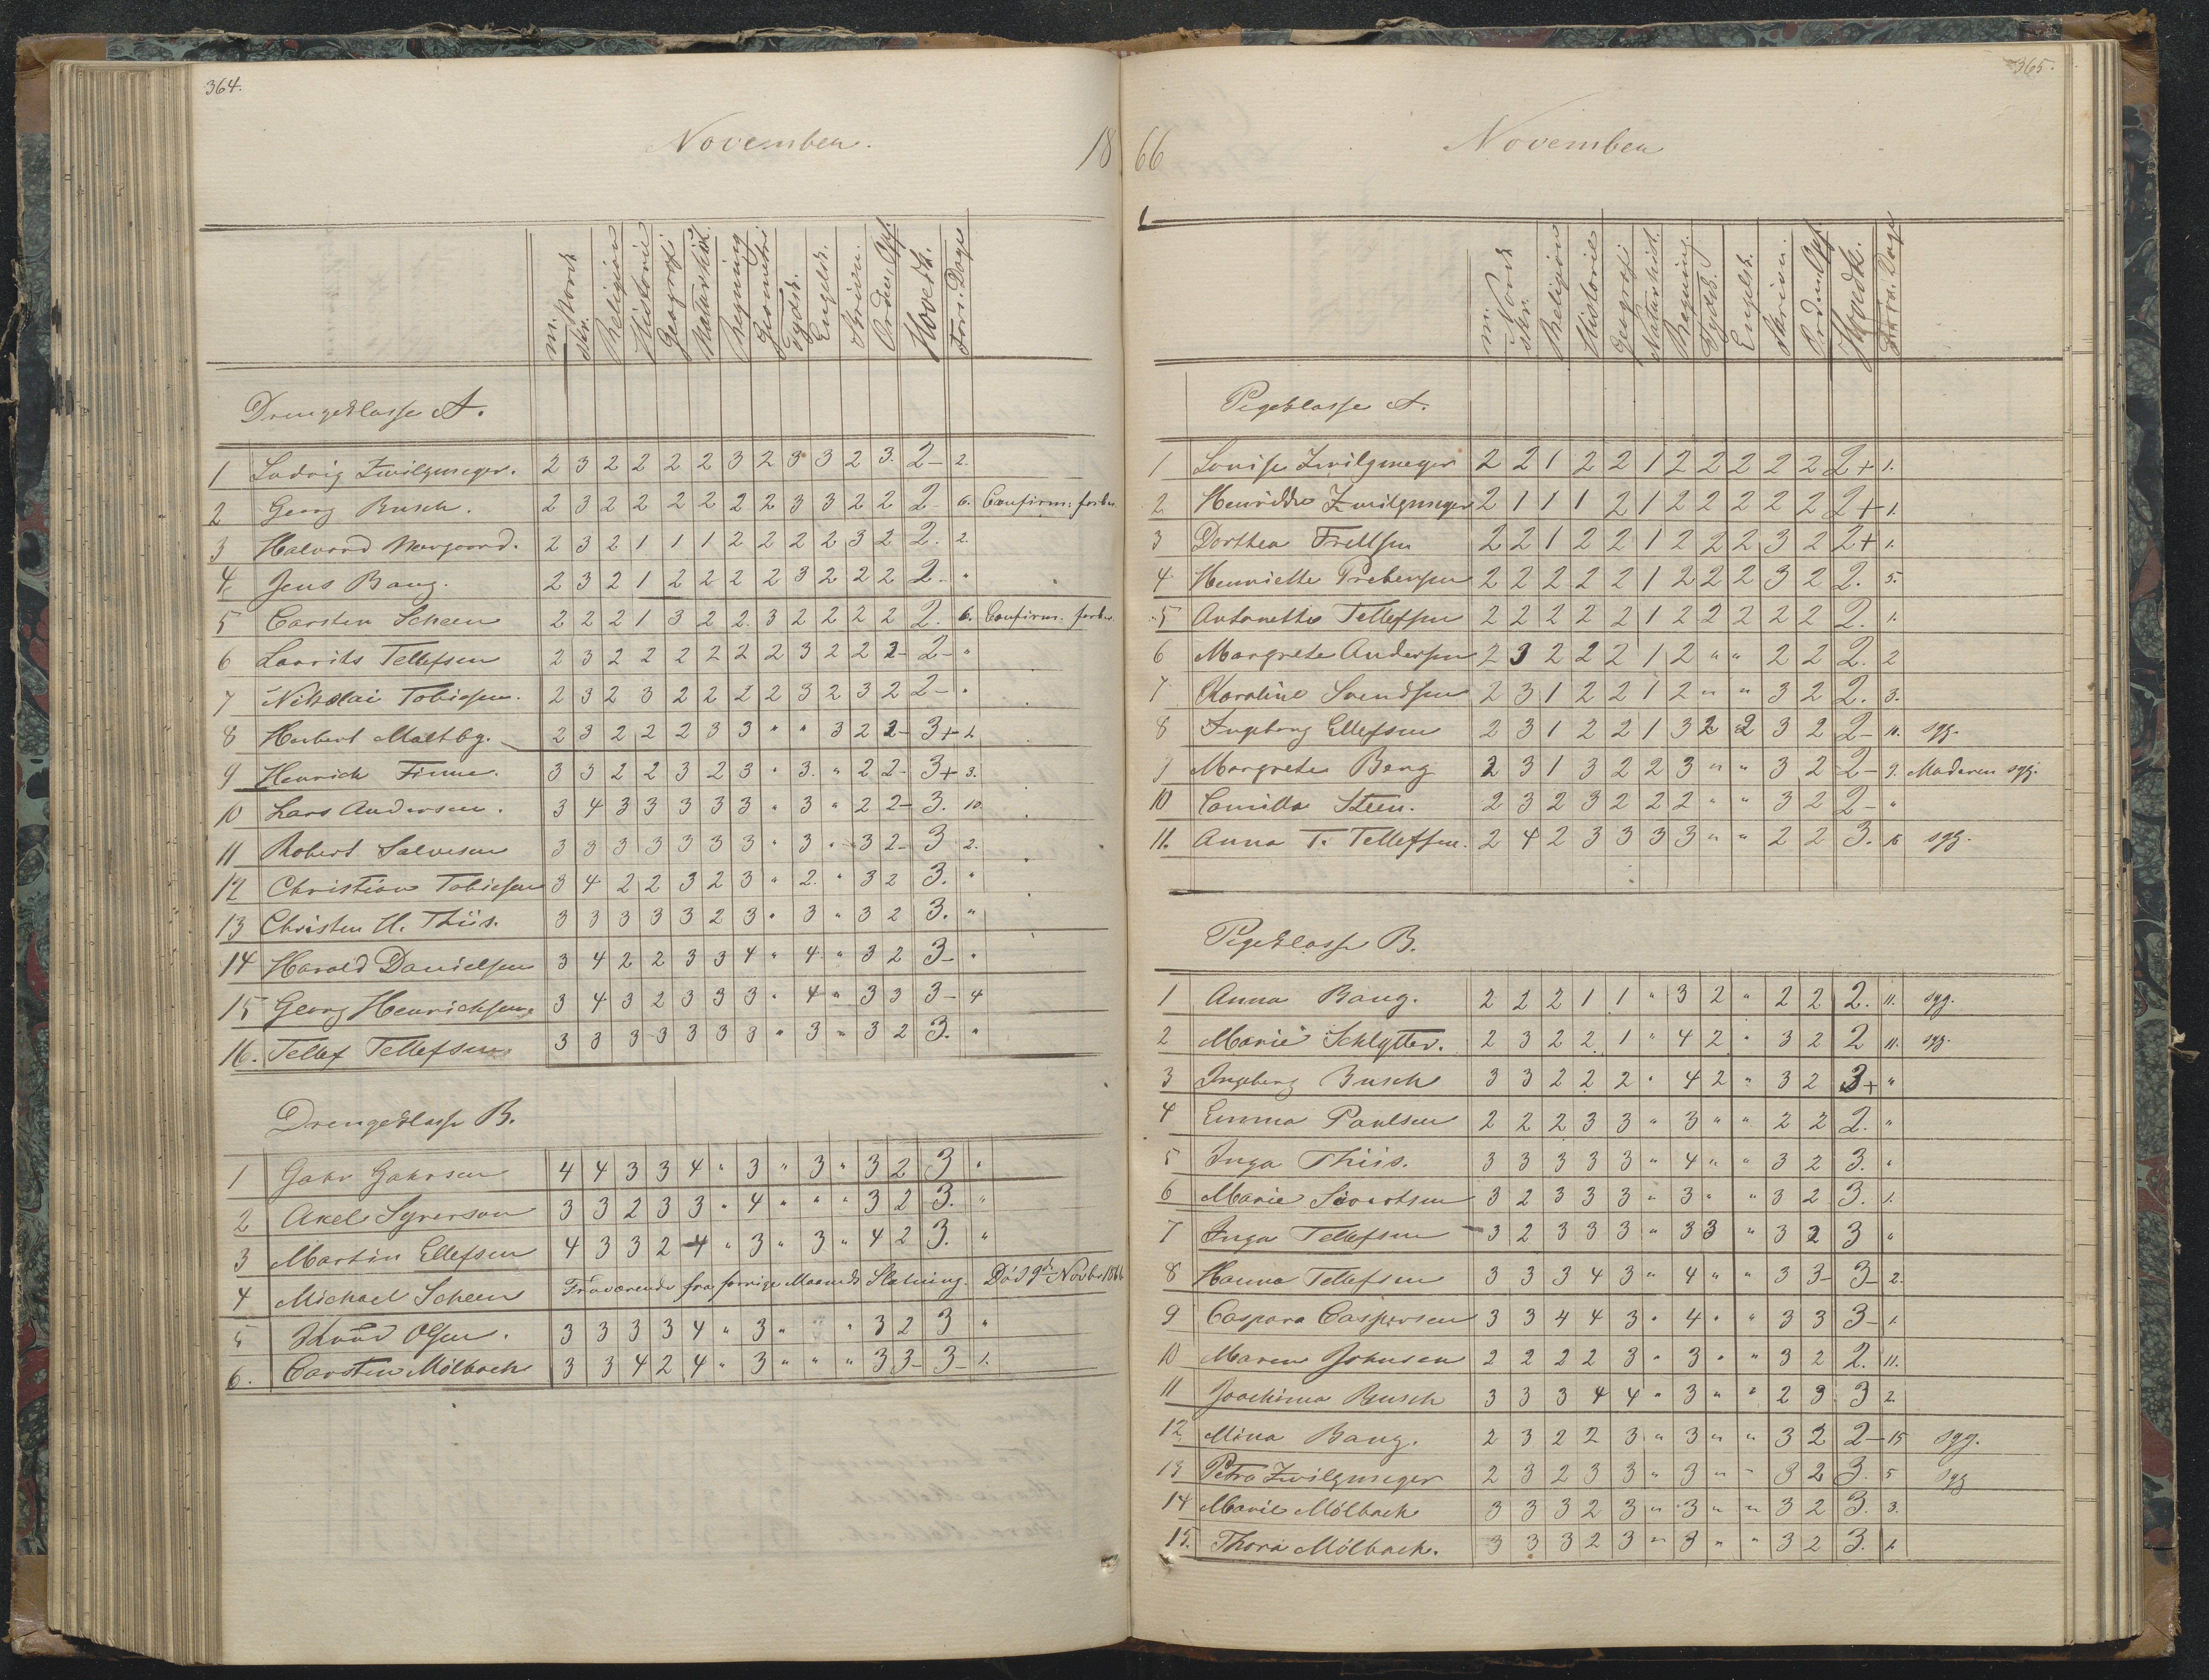 364.
November.
18
m. Norsk
skr.
Religion
Historie
Geografi
Naturhist.
Regning
Geometri
Tydsk.
Engelsk.
Skrivn.
Orden. Opf.
Hovedk.
Fors. Dage
Drengeklasse A.
1 Ludvig Zwilgmeyer. 2 3 2 2 2 2 3 2 3 3 2 3. 2- 2.
2 Georg Busch. 2 3 2 2 2 2 2 2 3 3 2 2 2 6. Confirm: forber
3 Halvord Norgaard. 2 3 2 1 1 1 2 2 2 2 3 2 2. 2.
4. Jens Bang. 2 3 2 1 2 2 2 2 3 2 2 2 2. "
5 Carsten Scheen 2 2 2 1 3 2 2. 3 2 2 2 2 2. 6. Confirm. forber.
6 Laurits Tellefsen 2 3 2 2 2 2 2 2 3 2 2 2- 2- "
7 Nikolai Tobiesen. 2 3 2 3 2 2 2 2 3 2 3 2 2- "
8 Herbert Maltbg. 2 3 2 2 2 3 3 " " 3 2 2- 3+ 2
9 Henrich Finne. 3 3 2 2 3 2 3 " 3. " 2 2- 3+ 3.
10 Lars Andersen. 3 4 3 3 3 3 3 " 3 " 2 2- 3. 10
11 Robert Salvesen 3 3 3 3 3 3 3 " 3 " 3 2- 3 2.
12 Christian Tobiesen 3 4 2 2 3 2 3 " 2. " 3 2 3. "
13 Christen H. Thiis. 3 3 3 3 3 2 3 " 3 " 3 2 3. "
14 Harald Danielsen 3 4 2 2 3 3 4 " 4 " 3 2 3- "
15 Georg Henrichsen 3 4 3 2 3 3 3 " 4 " 3 3 3- 4
16. Tellef Tellefsen 3 3 3 3 3 3 3 " 3 " 3 2 3. "
Drengeklasse B.
1 Gahr Gahrsen 4 4 3 3 4 " 3 " 3 " 3 2 3 "
2 Axel Syverson 3 3 2 3 3 " 4 " " " 3 2 3. "
3 Martin Ellefsen 4 3 3 2 4 " 3 " 3 " 4 2 3. "
4 Michael Scheen Fraværende fra forrige Maaneds Slutning. Død 9de Novbr 1866
5 Knud Olsen. 3 3 3 3 4 " 3 " " 3 2 3 "
6. Carsten Mølbach 3 3 4 2 4 " 3 " " " 3 3- 3- 1.
365.
66
November
m. Norsk
skr.
Religion
Historie
Geografi
Naturhist.
Regning.
Tydsk.
Engelsk.
Skrivn.
Orden. Opf
Hovedk.
Fors. Dage
Pigeklasse A.
1 Louise Zwilgmeyer 2 2 1 2 2 1 2 2 2 2 2 2+ 1.
2 Henrikke Zwilgmeyer 2 1 1 1 2 1 2 2 2 2 2 2+ 1.
3 Dorthea Frellsen 2 2 1 2 2 1 2 2 2 3 2 2+ 1.
4 Henriette Prebensen 2 2 2 2 2 1 2 2 2 3 2 2. 5.
5 Antonette Tellefsen 2 2 2 2 2 1 2 2 2 2 2 2. 1.
6 Margrete Andersen 2 3 2 2 2 1 2 " " 2 2 2. 2
7 Karoline Svendsen 2 3 1 2 2 1 2 " " 3 2 2. 3.
8 Ingeborg Ellefsen 2 3 1 2 2 1 3 2 2 3 2 2- 11. syg.
9 Margrete Berg 2 3 1 3 2 2 3 " " 3 2 2- 9. Moderen syg.
10 Camilla Steen. 2 3 2 3 2 2 2 " " 3 2 2- "
11. Anna T. Tellefsen. 2 4 2 3 3 3 3 " " 2 2 3. 15 syg.
Pigeklasse B.
1 Anna Bang. 2 2 2 1 1 " 3 2 " 2 2 2. 11. syg.
2 Marie Schlytter. 2 3 2 2 1 " 4 2 " 3 2 2 11. syg.
3 Ingeborg Busch 3 3 2 2 2 " 4 2 " 3 2 3+ "
4 Emma Paulsen 2 2 2 3 3 " 3 " " 2 2 2. "
5 Inga Thiis. 3 3 3 3 3 " 4 " " 3 2 3. "
6 Marie Sivertsen 3 2 3 3 3 " 3 " " 3 2 3. 1.
7 Inga Tellefsen 3 2 3 3 3 " 3 3 " 3 2 3 "
8 Hanna Tellefsen 3 3 3 4 3 " 4 " " 3 3- 3- 2.
9 Caspara Caspersen 3 3 4 4 3 " 4 " " 3 3 3- 1.
10 Maren Johnsen 2 2 2 2 3 " 3 " " 3 2 2. 11.
11 Joachima Busch 3 3 3 4 4 " 3 " " 2 3 3 2
12. Mina Bang. 2 3 2 2 3 " 3 " " 3 2 2- 15 syg.
13 Petra Zwilgmeyer 2 3 2 3 3 " 3 " " 3 2 3. 5 syg
14 Marie Mölbach 3 3 3 2 3 " 3 " " 3 2 3. 3.
15. Thora Mölbach. 3 3 3 2 3 " 3 " " 3 2 3. 1.